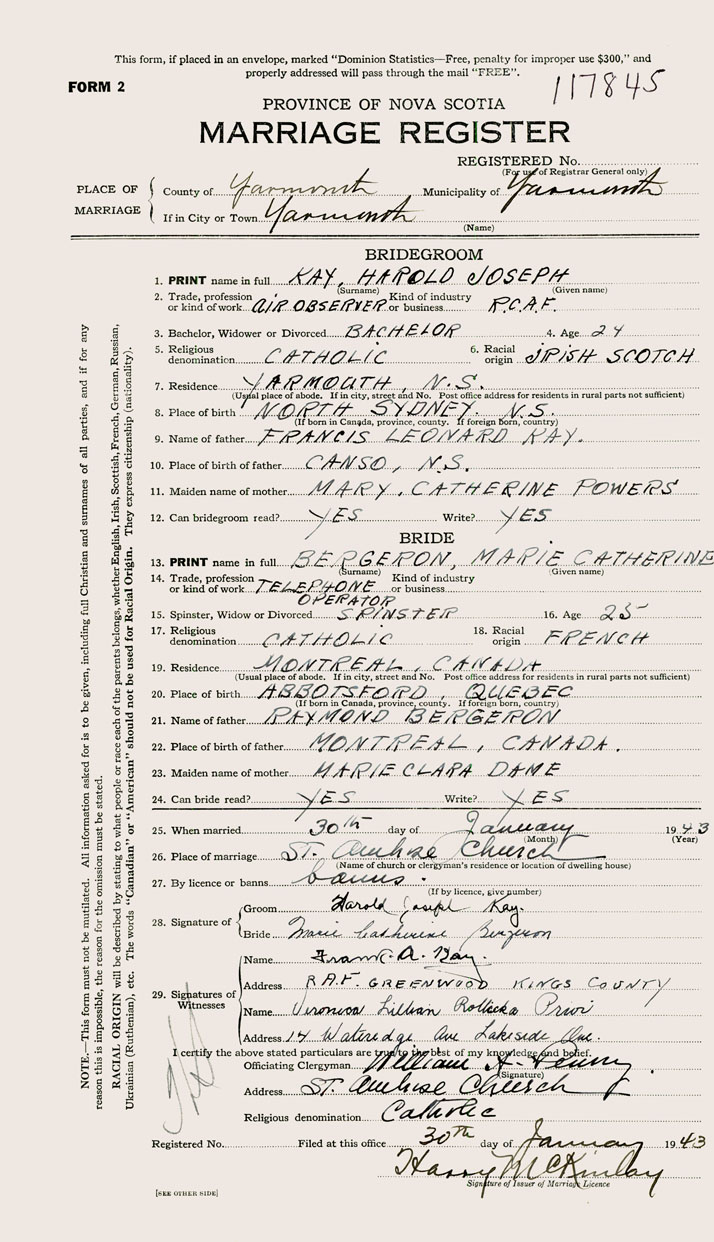 This form, if placed in an envelope, marked “Dominion Statistics—Free, penalty for improper use $300,” and
properly addressed will pass through the mail “FREE”.
FORM 2
117845
PROVINCE OF NOVA SCOTIA
MARRIAGE REGISTER
REGISTERED No.
(For use of Registrar General only)
PLACE OF MARRIAGE
County of Yarmouth Municipality of Yarmouth
If in City or Town Yarmouth
(Name)
BRIDEGROOM
1. PRINT name in full KAY, HAROLD JOSEPH
(Surname) (Given name)
2. Trade, profession or kind of work AIR OBSERVER Kind of industry or business R.C.A.F.
3. Bachelor, Widower or Divorced BACHELOR 4. Age 24
5. Religious denomination CATHOLIC 6. Racial origin IRISH SCOTCH
7. Residence YARMOUTH, N.S.
(Usual place of abode. If in city, street and No. Post office address for residents in rural parts not sufficient)
8. Place of birth NORTH SYDNEY. N.S.
(If born in Canada, province, county. If foreign born, country)
9. Name of father FRANCIS LEONARD KAY.
10. Place of birth of father CANSO, N.S.
11. Maiden name of mother MARY. CATHERINE POWERS
12. Can bridegroom read? YES Write? YES
BRIDE
13. PRINT name in full BERGERON, MARIE CATHERINE
(Surname) (Given name)
14. Trade, profession or kind of work TELEPHONE OPERATOR Kind of industry or business
15. Spinster, Widow or Divorced SPINSTER 16. Age 25
17. Religious denomination CATHOLIC 18. Racial origin FRENCH
19. Residence MONTREAL, CANADA
(Usual place of abode. If in city, street and No. Post office address for residents in rural parts not sufficient)
20. Place of birth ABBOTSFORD, QUEBEC
(If born in Canada, province, county. If foreign born, country)
21. Name of father RAYMOND BERGERON
22. Place of birth of father MONTREAL, CANADA.
23. Maiden name of mother MARIE CLARA DAME
24. Can bride read? YES Write? YES
25. When married 30th day of January 1943
(Month) (Year)
26. Place of marriage ST. Ambrose Church
(Name of church or clergyman's residence or location of dwelling house)
27. By licence or banns banns.
(If by licence, give number)
28. Signature of
Groom Harold Joseph Kay.
Bride Marie Catherine Bergeron
29. Signatures of Witnesses
Name Frank. A. Kay.
Address R.A.F. GREENWOOD KINGS COUNTY
Name Veronica Lillian
Address 14 Wateredge Ave Lakeside Que.
I certify the above stated particulars are true to the best of my knowledge and belief.
Officiating Clergyman William A.
(Signature)
Address ST. Ambrose Church
Religious denomination Catholic
Registered No. Filed at this office 30th day of January 1943
Harry McKinlay
Signature of Issuer of Marriage Licence
[SEE OTHER SIDE]
NOTE.—This form must not be mutilated. All information asked for is to be given, including full Christian and surnames of all parties, and if for any
reason this is impossible, the reason for the omission must be stated.
RACIAL ORIGIN will be described by stating to what people or race each of the parents belongs, whether English, Irish, Scottish, French, German, Russian,
Ukrainian (Ruthenian), etc. The words “Canadian” or “American” should not be used for Racial Origin. They express citizenship (nationality).